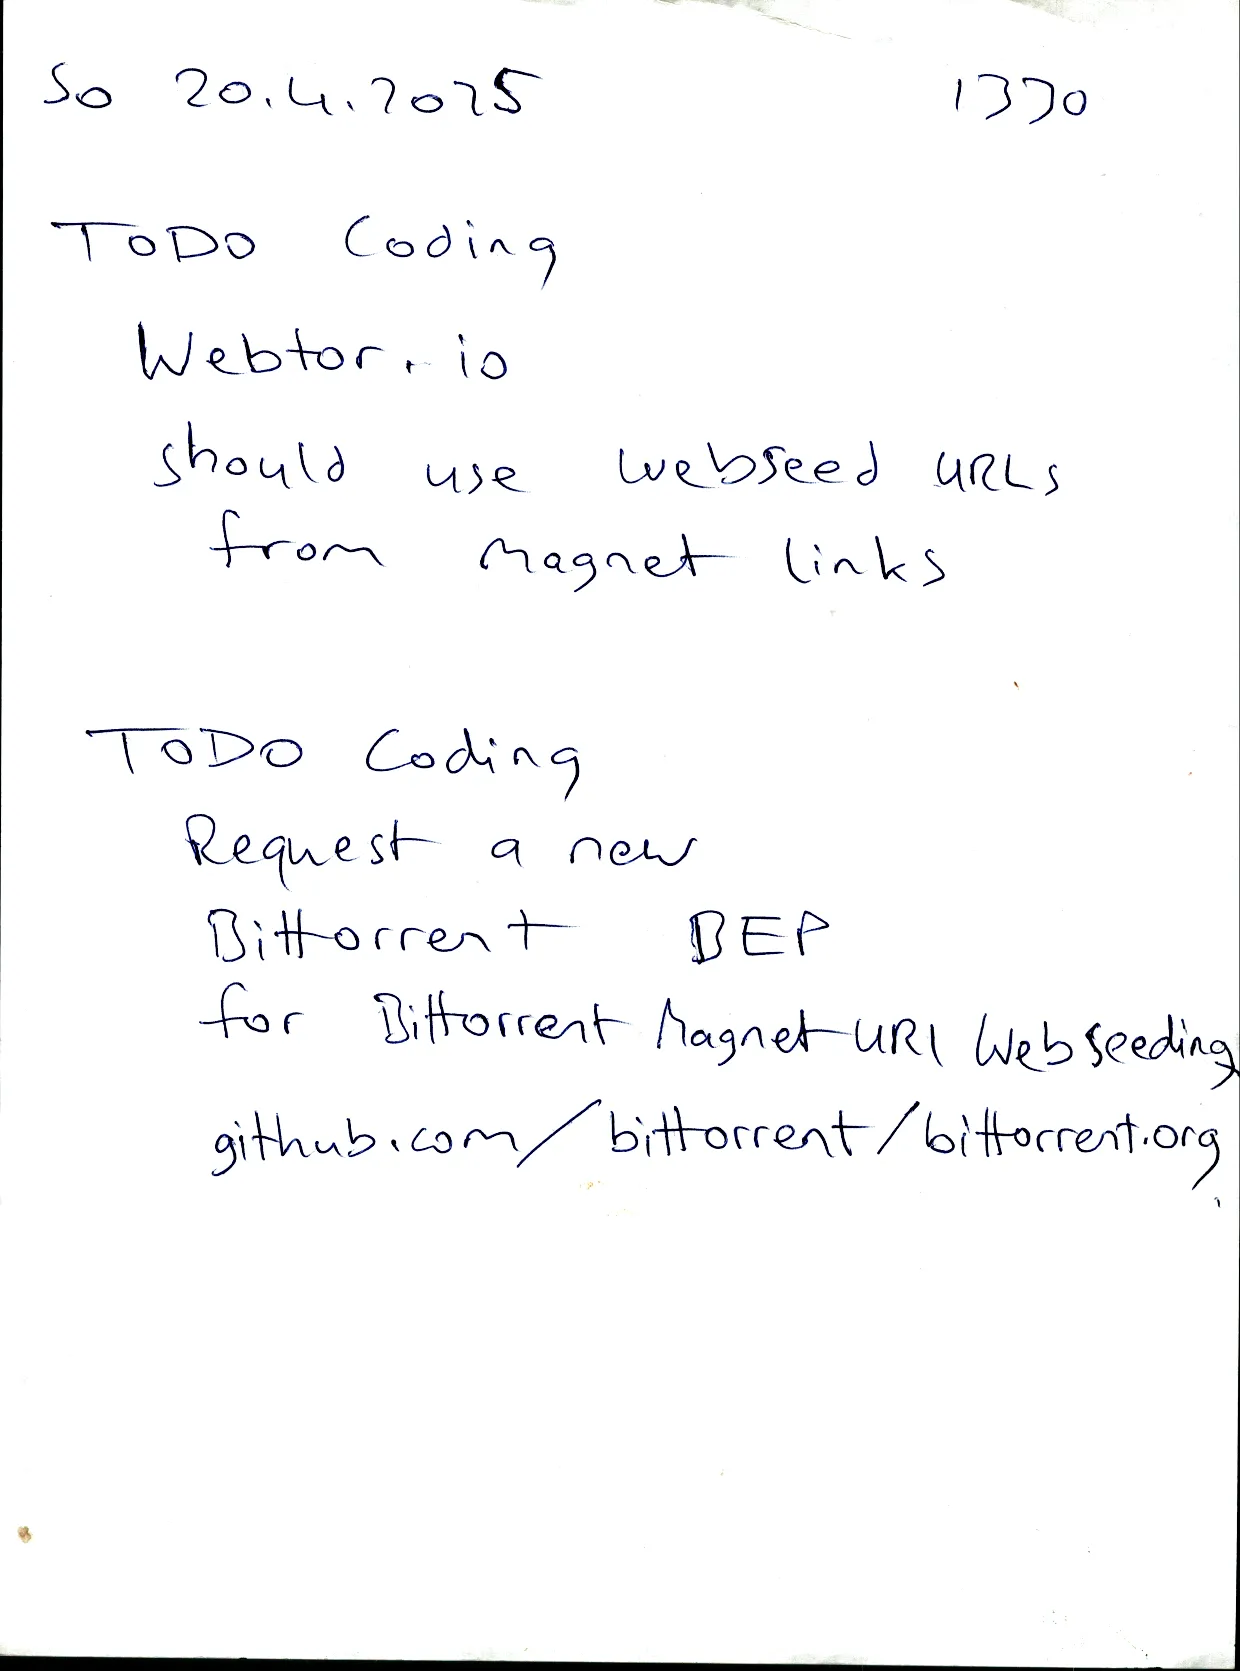 So 20.4.2025 1330
TODO Coding
Webtor.io
should use webseed URLs
from magnet links
TODO Coding
Request a new
Bittorrent BEP
for Bittorrent Magnet URI Webseeding
github.com/bittorrent/bittorrent.org